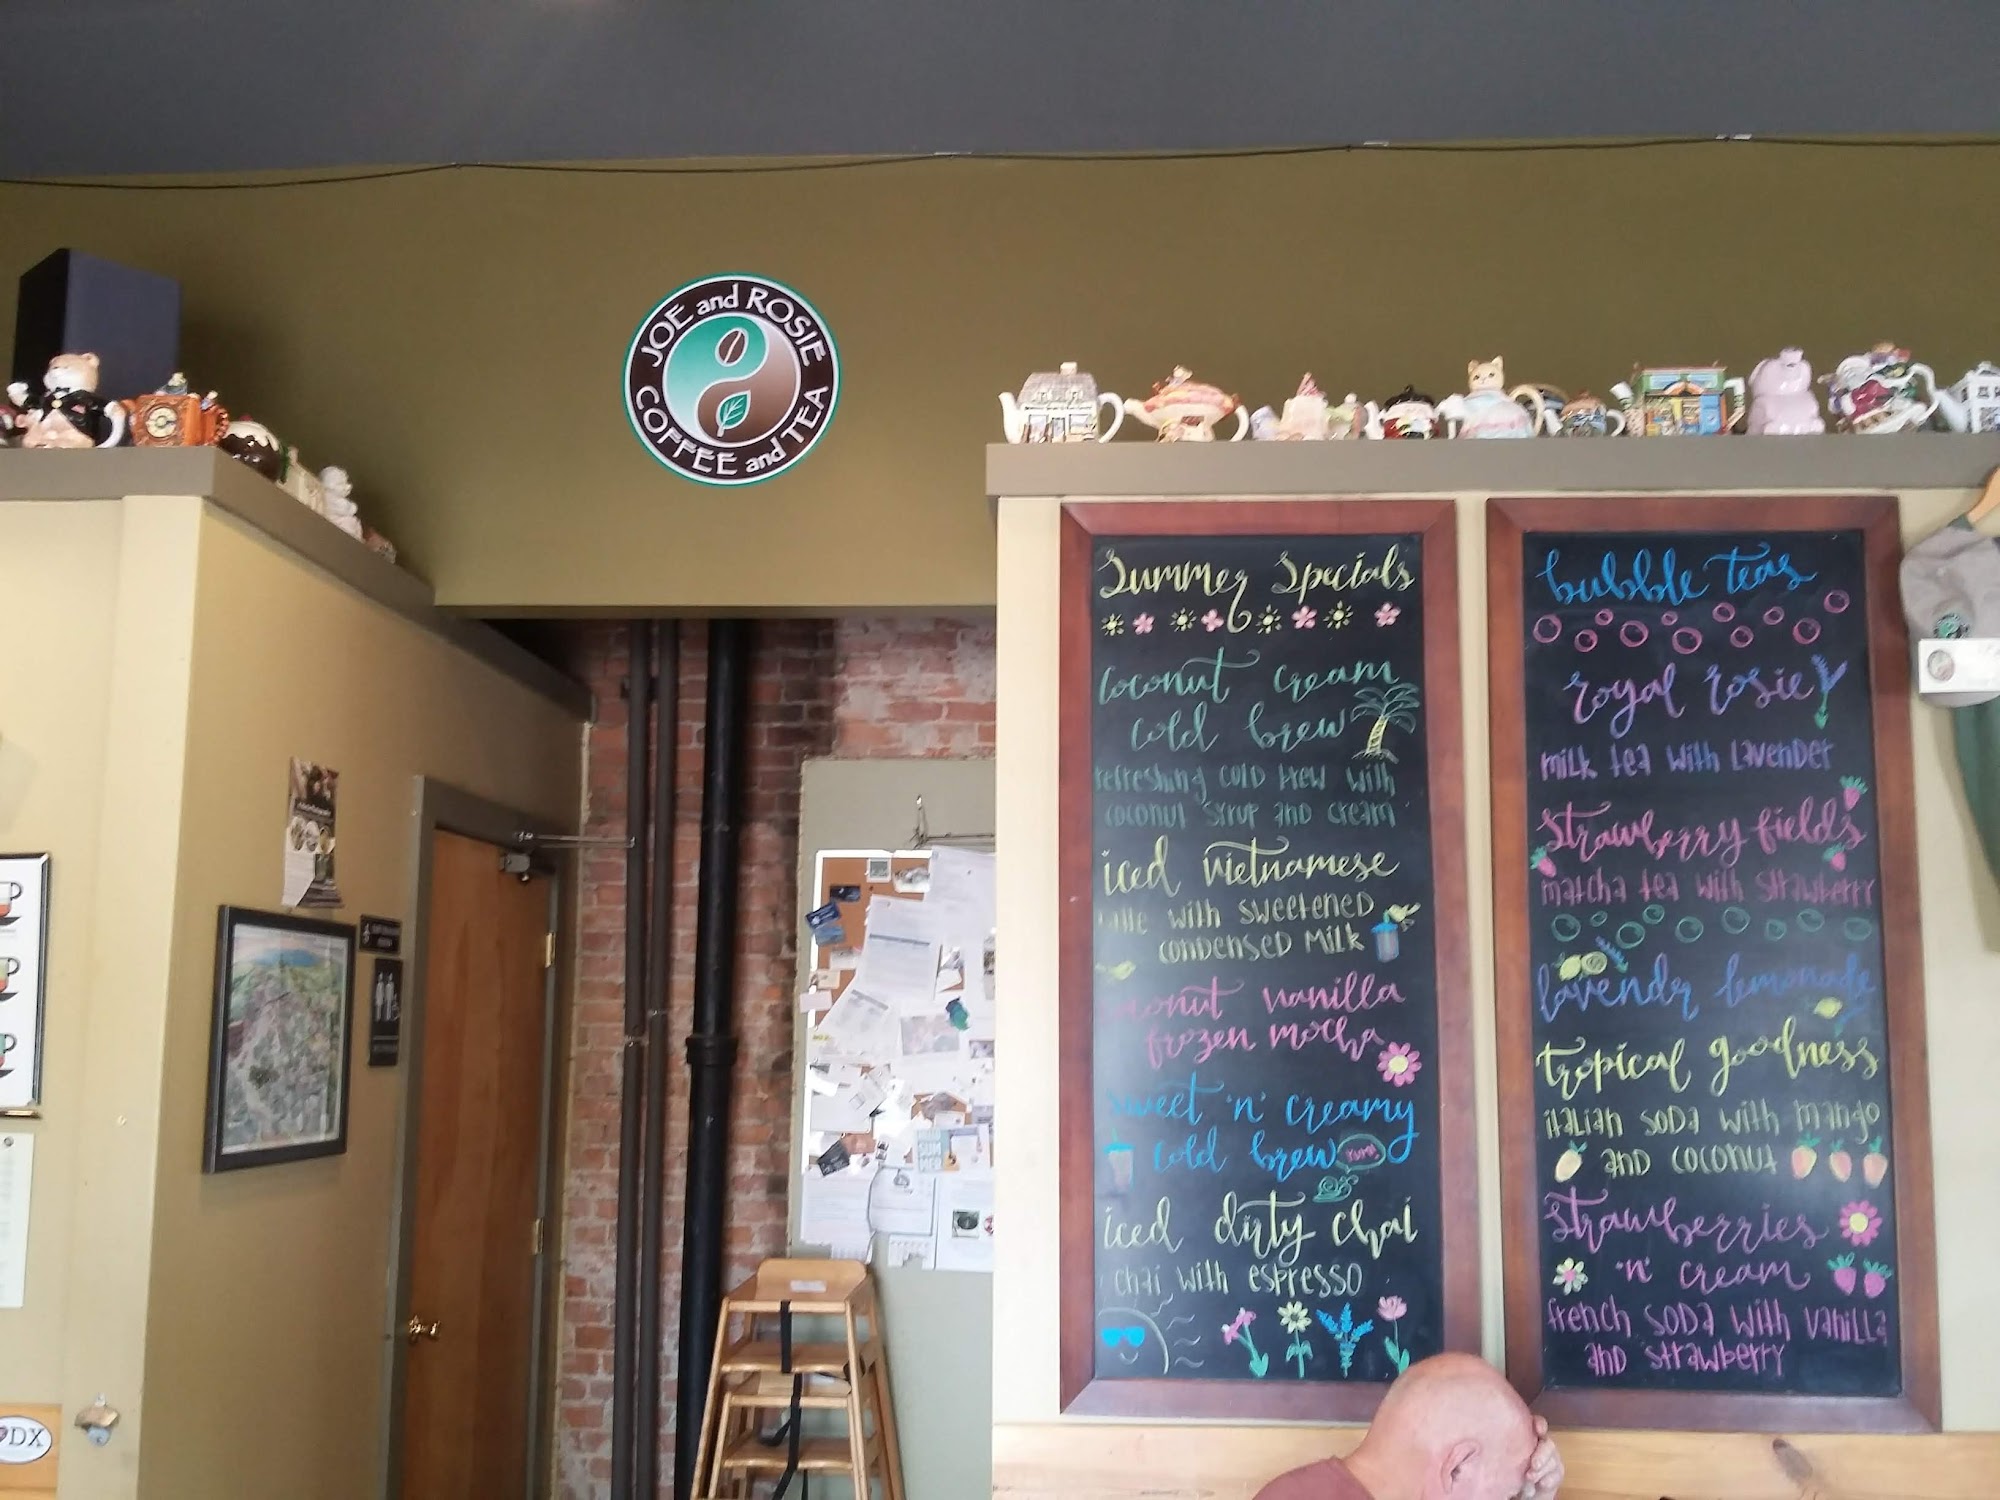 JOE and ROSIE
COFFEE and TEA
Summer Specials
coconut cream
cold brew
refreshing cold brew with
coconut syrup and cream
iced vietnamese
with sweetened
condensed milk
vanilla
frozen mocha
sweet 'n' creamy
cold brew
YUM!
iced dirty chai
chai with espresso
bubble teas
royal rosie
milk tea with lavender
strawberry fields
matcha tea with strawberry
lavender lemonade
tropical goodness
italian soda with mango
and coconut
strawberries
'n' cream
french soda with vanilla
and strawberry
DX